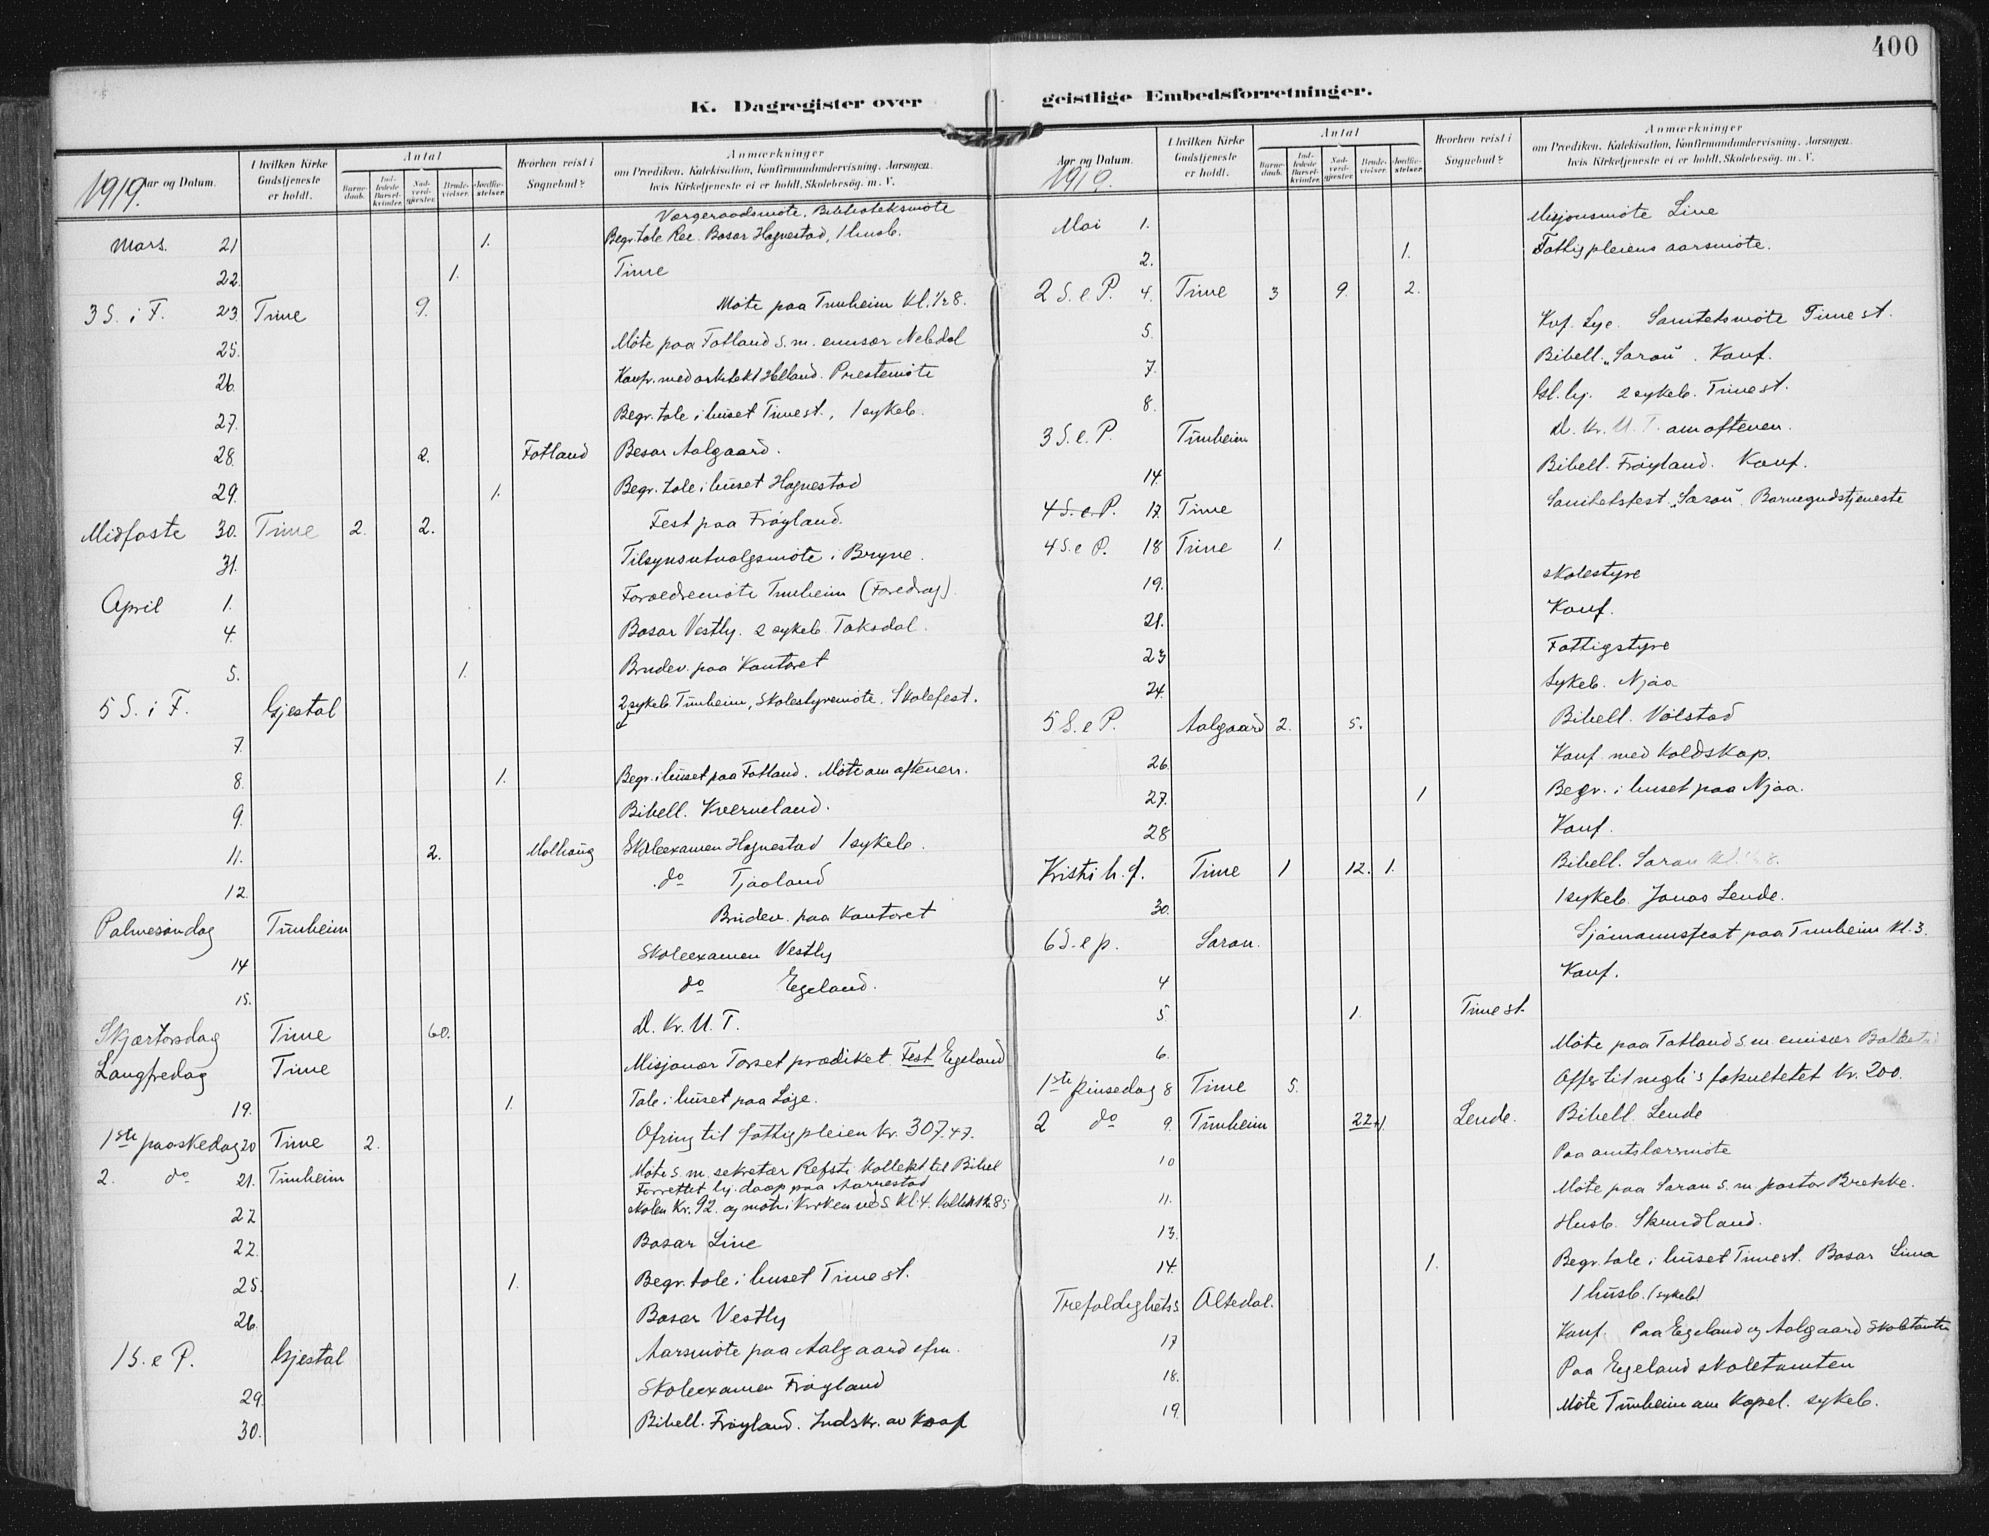 400
K. Dagregister over
geistlige Embedsforretninger.
Aar og Datum.
I hvilken Kirke Gudstjeneste er holdt.
Antal
Barnedaab.
Indledede Barselkvinder.
Nadverdgjæster.
Brudevielser.
Jordfæstelser.
Hvorhen reist i Sognebud?
Anmærkninger
om Prædiken, Katekisation, Konfirmandundervisning, Aarsagen,
hvis Kirketjeneste ei er holdt, Skolebesøg, m. V.
1919.
Værgeraadsmøte. Biblioteksmøte
Mars. 21 1. Begr. tale Ree. Basar Hognestad, 1 husb.
22. 1. Time
3 S. i F. 23. Time 9. Møte paa Tunheim Kl. 1/2 8.
25. Møte paa Fotland s. m. emisær Nebdal
26. Konfr. med arkitekt Helland. Prestemøte
27. Begr. tale i huset Time st., 1 sykeb.
28. 2. Fotland Basar Aalgaard.
29. 1. Begr. tale i huset Hognestad
Midfaste 30. Time 2. 2. Fest paa Frøyland.
31. Tilsynsutvalgsmøte i Bryne.
April 1. Foraeldremøte Tunheim (Foredrag).
4. Basar Vestly. 2 sykeb. Taksdal.
5. 1. Brudev. paa Kontoret
5 S. i F. Gjestal 2 sykeb. Tunheim, Skolestyremøte. Skolefest.
7.
8. 1. Begr. i huset paa Fotland. Møte om aftenen.
9. Bibell. Kverneland.
11. 2. Malhaug Skoleexamen Hognestad 1 sykeb.
12. do Tjaaland
Palmesøndag Tunheim Brudev. paa Kontoret
14 Skoleexamen Vestly
15. do Egeland.
Skjærtorsdag Time 60. D. Kr. U. T.
Langfredag Time Misjonær Torset prædiket. Fest Egeland
19. 1. Tale i huset paa Løge.
1ste paaskedag 20 Time 2. Ofring til fattigpleien Kr. 307.47.
2. do 21. Tunheim Møte s. m. sekretær Refsti Kollekt til Bibel
Forrettet hj. daap paa Aarrestad
skolen Kr. 92. og møte i Kirken veds. Kl 4. Kollekt Kr 85
22
22. Basar Line
25. 1. Begr. tale i huset Time st.
26. Basar Vestly
1 S. e P. Gjestal Aarsmøte paa Aalgaard efm.
29. Skoleexamen Frøyland
30. Bibell. Frøyland. Indskr. av Konf
Aar og Datum.
I hvilken Kirke Gudstjeneste er holdt.
Antal
Barnedaab.
Indledede Barselkvinder.
Nadverdgjæster.
Brudevielser.
Jordfæstelser.
Hvorhen reist i Sognebud?
Anmærkninger
om Prædiken, Katekisation, Konfirmandundervisning, Aarsagen,
hvis Kirketjeneste ei er holdt, Skolebesøg, m. V.
1919.
Mai 1. Misjonsmøte Line
2. 1. Fattigpleiens aarsmøte.
2 S. e P. 4. Time 3 9. 2.
5. Kvf. Lye. Sanitetsmøte Time st.
7. Bibell. "Saron". Konf.
8. Gl. hj. 2 sykeb. Time st.
3 S. e. P. Tunheim D. Kr. U. T. om aftenen.
14 Bibell. Frøyland. Konf.
4 S. e. P. 17. Time Sanitetsfest "Saron". Barnegudstjeneste
4 S. e P. 18 Time 1.
19. Skolestyre
21. Konf.
23 Fattigstyre
24. Sykeb. Njaa
5 S. e P. Aalgaard 2. 5. Bibell. Vølstad
26. Konf. med Koldskap.
27. 1 Begr. i huset paa Njaa.
28 Konf.
Kristi h. f. Time 1 12. 1. Bibell. Saron Kl. 1/2 8.
30. 1 sykeb. Jonas Lende.
6 S. e p. Saron. Sjømannsfest paa Tunheim Kl. 3.
4 Konf.
5 1. Time st.
6. Møte paa Fotland s. m. emisær
1ste pinsedag 8 Time 5. Offer til megh's fakultetet Kr. 200.
2 do 9. Tunheim 22+1. Lende. Bibell. Lende
10 Paa amtslærsmøte
11. Møte paa Saron s. m. pastor Brekke.
13. Husb. Skrudland.
14. 1. Begr. tale i huset Time st. Basar Lima
1 husb. (sykeb)
Trefoldighets s. Oltedal.
17 Konf. Paa Egeland og Aalgaard
18. Paa Egeland skoletomten
19. Møte Tunheim om Kapel. sykeb.